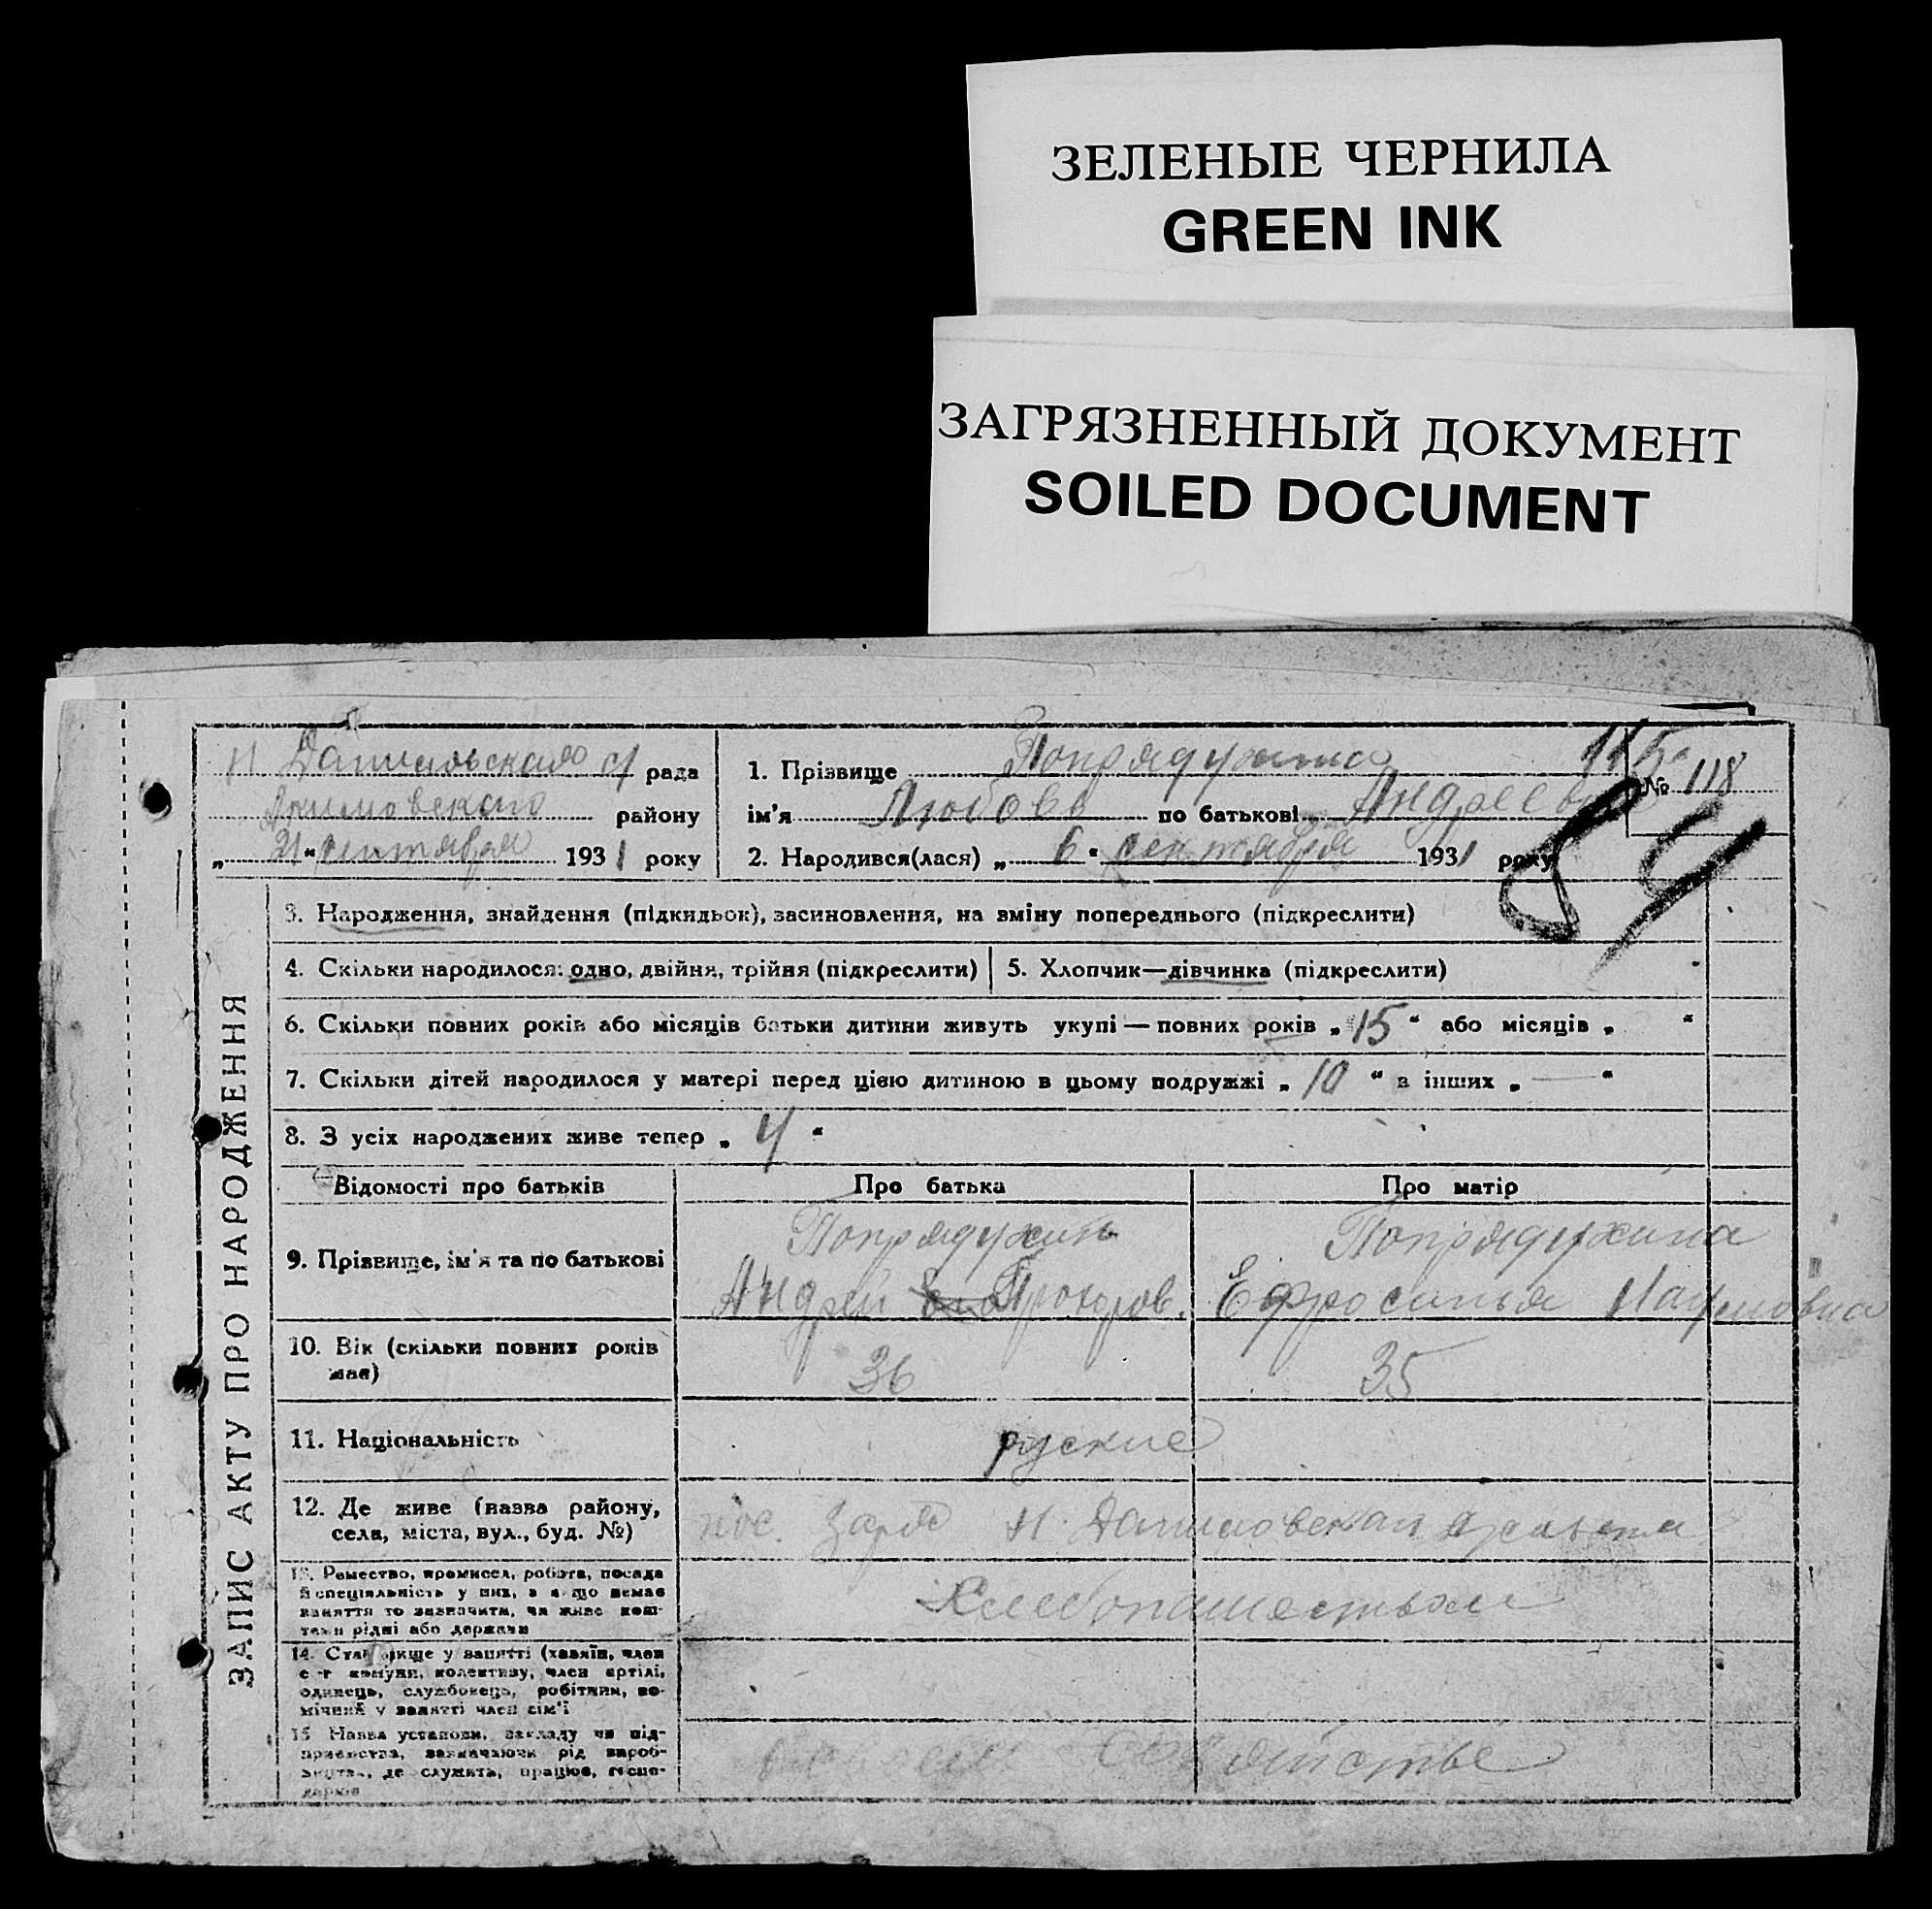 ЗЕЛЕНЫЕ ЧЕРНИЛА
GREEN INK
ЗАГРЯЗНЕННЫЙ ДОКУМЕНТ
SOILED DOCUMENT
ЗАПИС АКТУ ПРО НАРОДЖЕННЯ
Н Даниловская с/ рада
Акимовского району
„21“ сентября 1931 року
1. Прізвище Попрядухина
ім'я Любовь по батькові Андреевна
№ 118
115
54
2. Народився(лася) „6“ сентября 1931 року
3. Народження, знайдення (підкидьок), засиновлення, на зміну попереднього (підкреслити)
4. Скільки народилося: одно, двійня, трійня (підкреслити)
5. Хлопчик—дівчинка (підкреслити)
6. Скільки повних років або місяців батьки дитини живуть укупі — повних років „15“ або місяців „ “
7. Скільки дітей народилося у матері перед цією дитиною в цьому подружжі „10“ в інших „—“
8. З усіх народжених живе тепер „4“
Відомості про батьків Про батька Про матір
9. Прізвище, ім'я та по батькові
Попрядухин
Андрей Прохоров.
Попрядухина
Ефросинья Наумовна
10. Вік (скільки повних років має)
36 35
11. Національність
руские
12. Де живе (назва району, села, міста, вул., буд. №)
пос. Заря Н. Даниловская сельсета
13. Ремество, промисел, робота, посада
й спеціяльність у них, а якщо немає
заняття то зазначити, чи живе кош-
тами рідні або держави
Хлебопашеством
14. Становище у занятті (хазяїн, член
с-г комуни, колективу, член артілі,
одинець, службовець, робітник, по-
мічний у занятті член сім'ї
15 Назва установи, закладу чи під-
приємства, зазначаючи рід вироб-
ництва, де служить, працює, госпо-
дарює